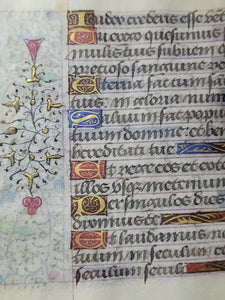 Iudex crederis esse ve
Te ergo quesumus
mulis tuis subueni
precioso sanguine
Eterna fac cum san
tuis in gloria nume
Saluum fac popu
tuum domine: et ben
hereditati tue
Et rege eos et exto
illos vsqz in eternum
Per singulos dies
dicimus te
Et laudamus no
tuum in seculum et
seculum seculi